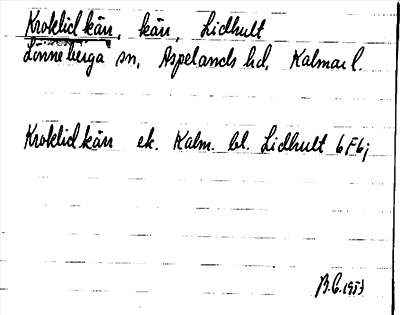 Kroklid kärr, kärr, Lidhult
Lönneberga sn, Aspelands hd, Kalmar l.
Kroklid kärr ek. Kalm. bl. Lidhult 6F6j
B.G. 1953